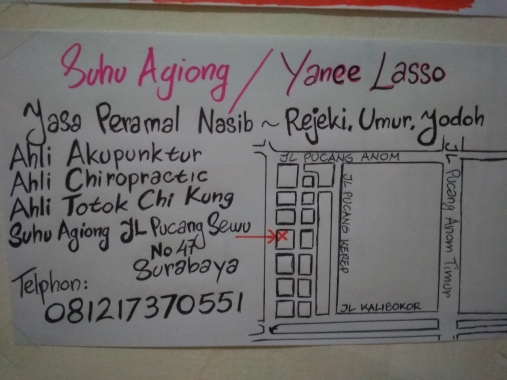 Suhu Agiong / Yanee Lasso
Jasa Peramal Nasib ~ Rejeki, Umur, Jodoh
Ahli Akupunktur
Ahli Chiropractic
Ahli Totok Chi Kung
Suhu Agiong JL Pucang Sewu
No 47
Surabaya
Telphon:
081217370551
JL PUCANG ANOM
JL PUCANG KEREP
JL Pucang Anom Timur
JL KALIBOKOR